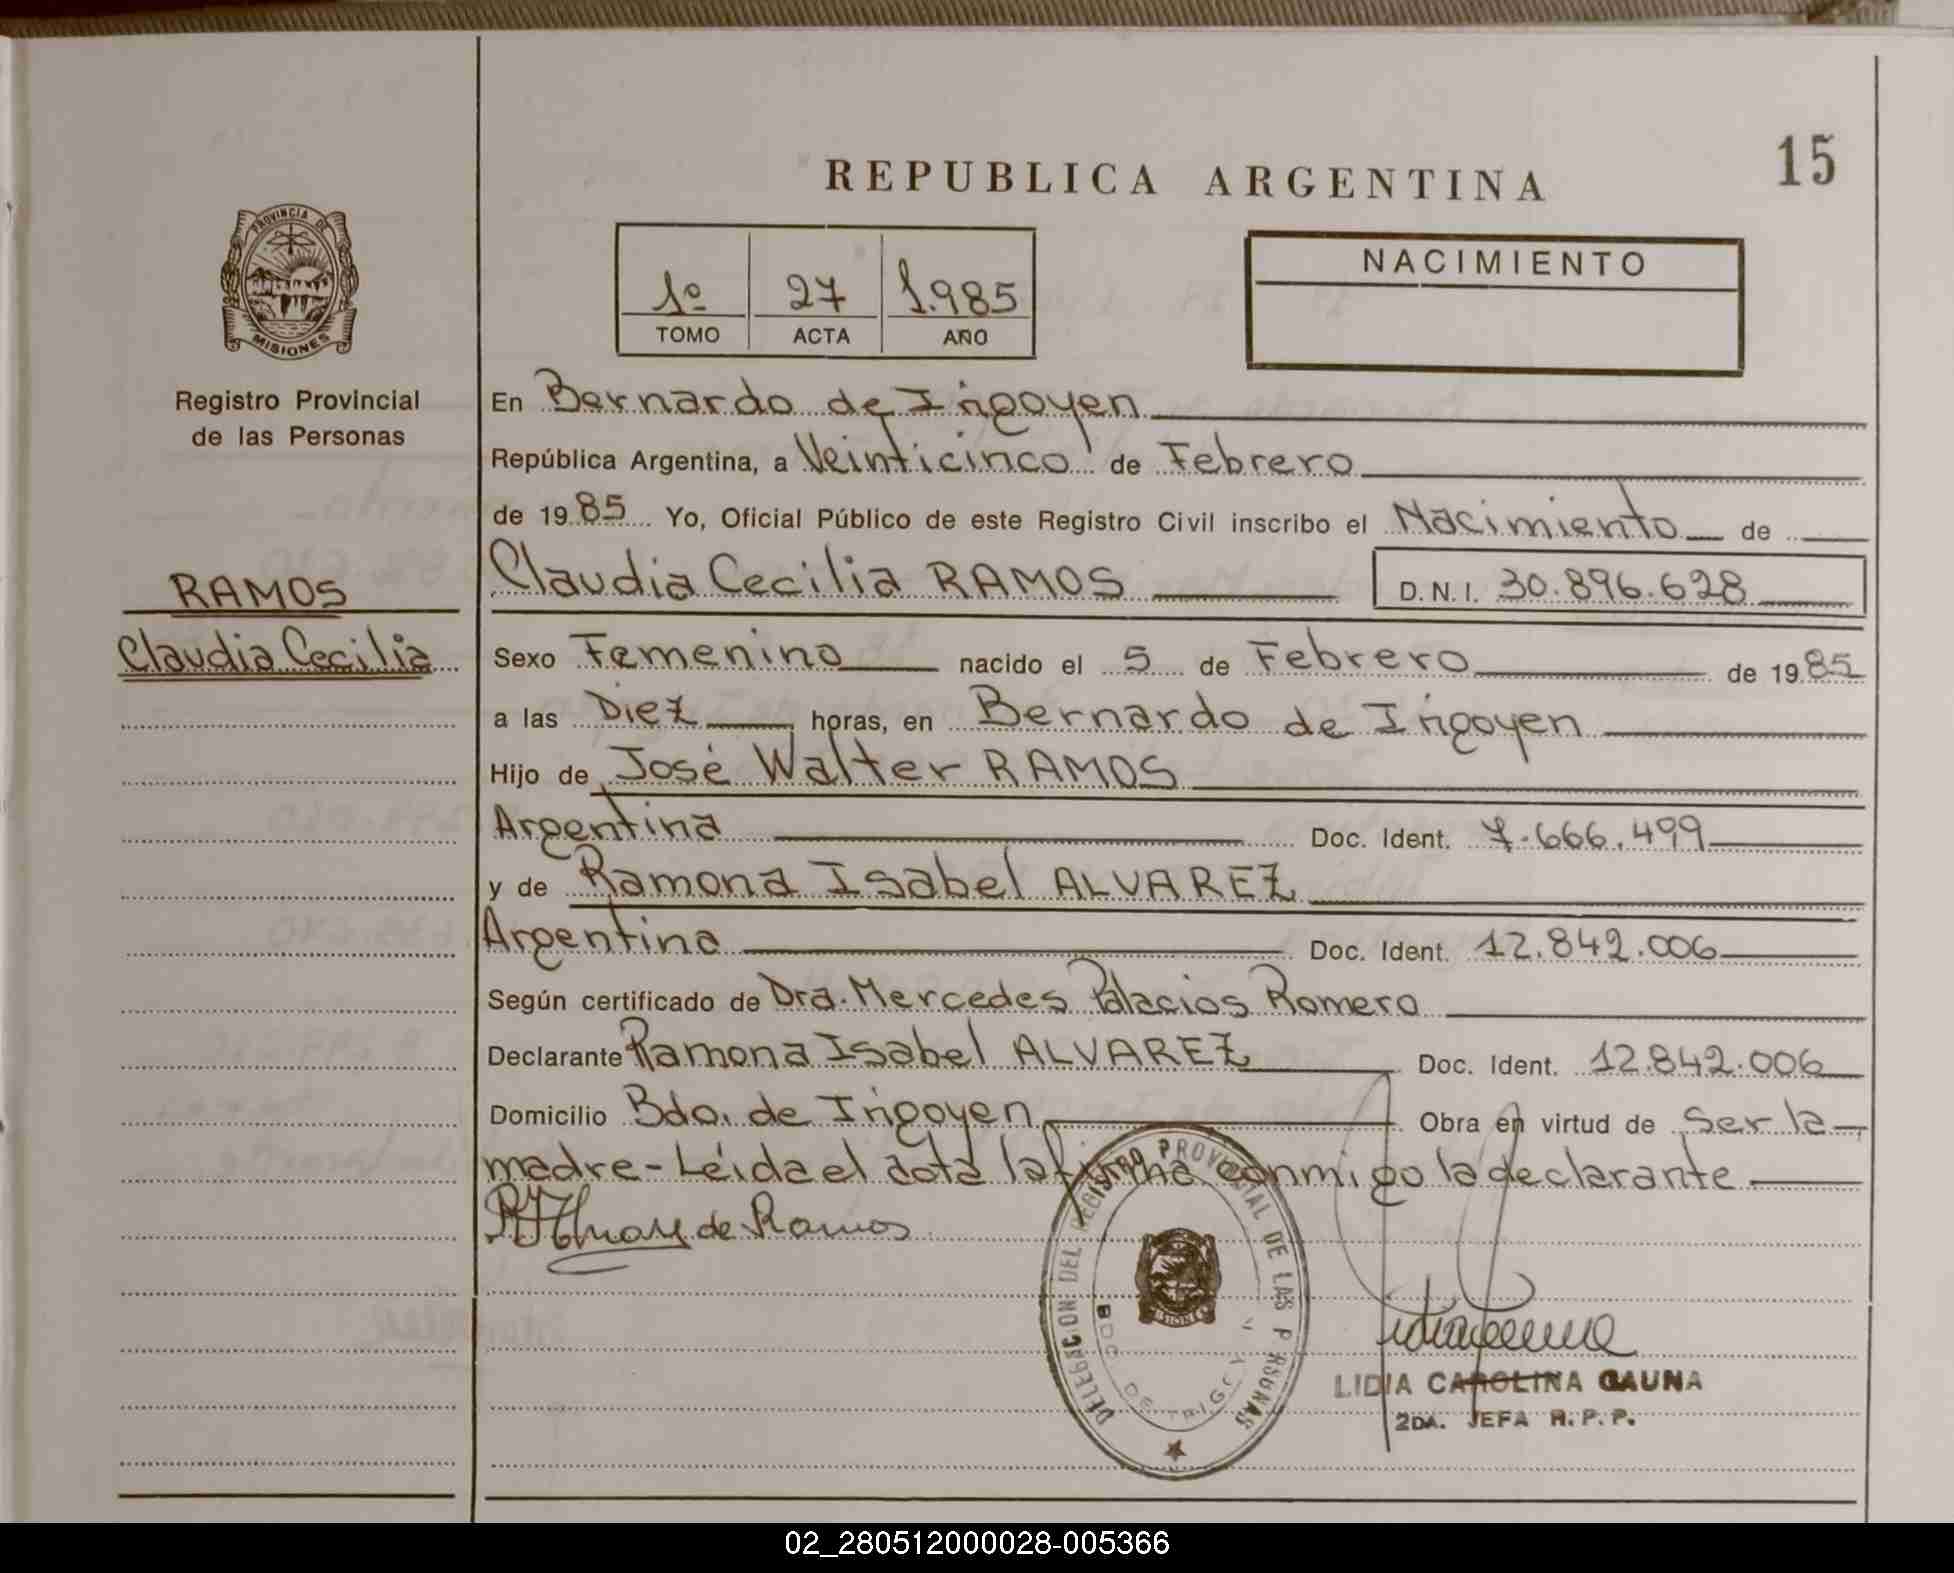 REPUBLICA ARGENTINA
15
PROVINCIA DE
MISIONES
Registro Provincial
de las Personas
1º 27 1.985
TOMO ACTA AÑO
NACIMIENTO
En Bernardo de Irigoyen
República Argentina, a Veinticinco de Febrero
de 1985 Yo, Oficial Público de este Registro Civil inscribo el Nacimiento de
Claudia Cecilia RAMOS D.N.I. 30.896.628
RAMOS
Claudia Cecilia
Sexo Femenino nacido el 5 de Febrero de 1985
a las Diez horas, en Bernardo de Irigoyen
Hijo de José Walter RAMOS
Argentina Doc. Ident. 7.666.499
y de Ramona Isabel ALVAREZ
Argentina Doc. Ident. 12.842.006
Según certificado de Dra. Mercedes Palacios Romero
Declarante Ramona Isabel ALVAREZ Doc. Ident. 12.842.006
Domicilio Bdo. de Irigoyen Obra en virtud de ser la
madre - Leída el acta la firma conmigo la declarante
de Ramos
DELEGACION DEL REGISTRO PROVINCIAL DE LAS PERSONAS
BDO. DE IRIGOYEN
MISIONES
LIDIA CAROLINA GAUNA
2DA. JEFA R.P.P.
02_280512000028-005366